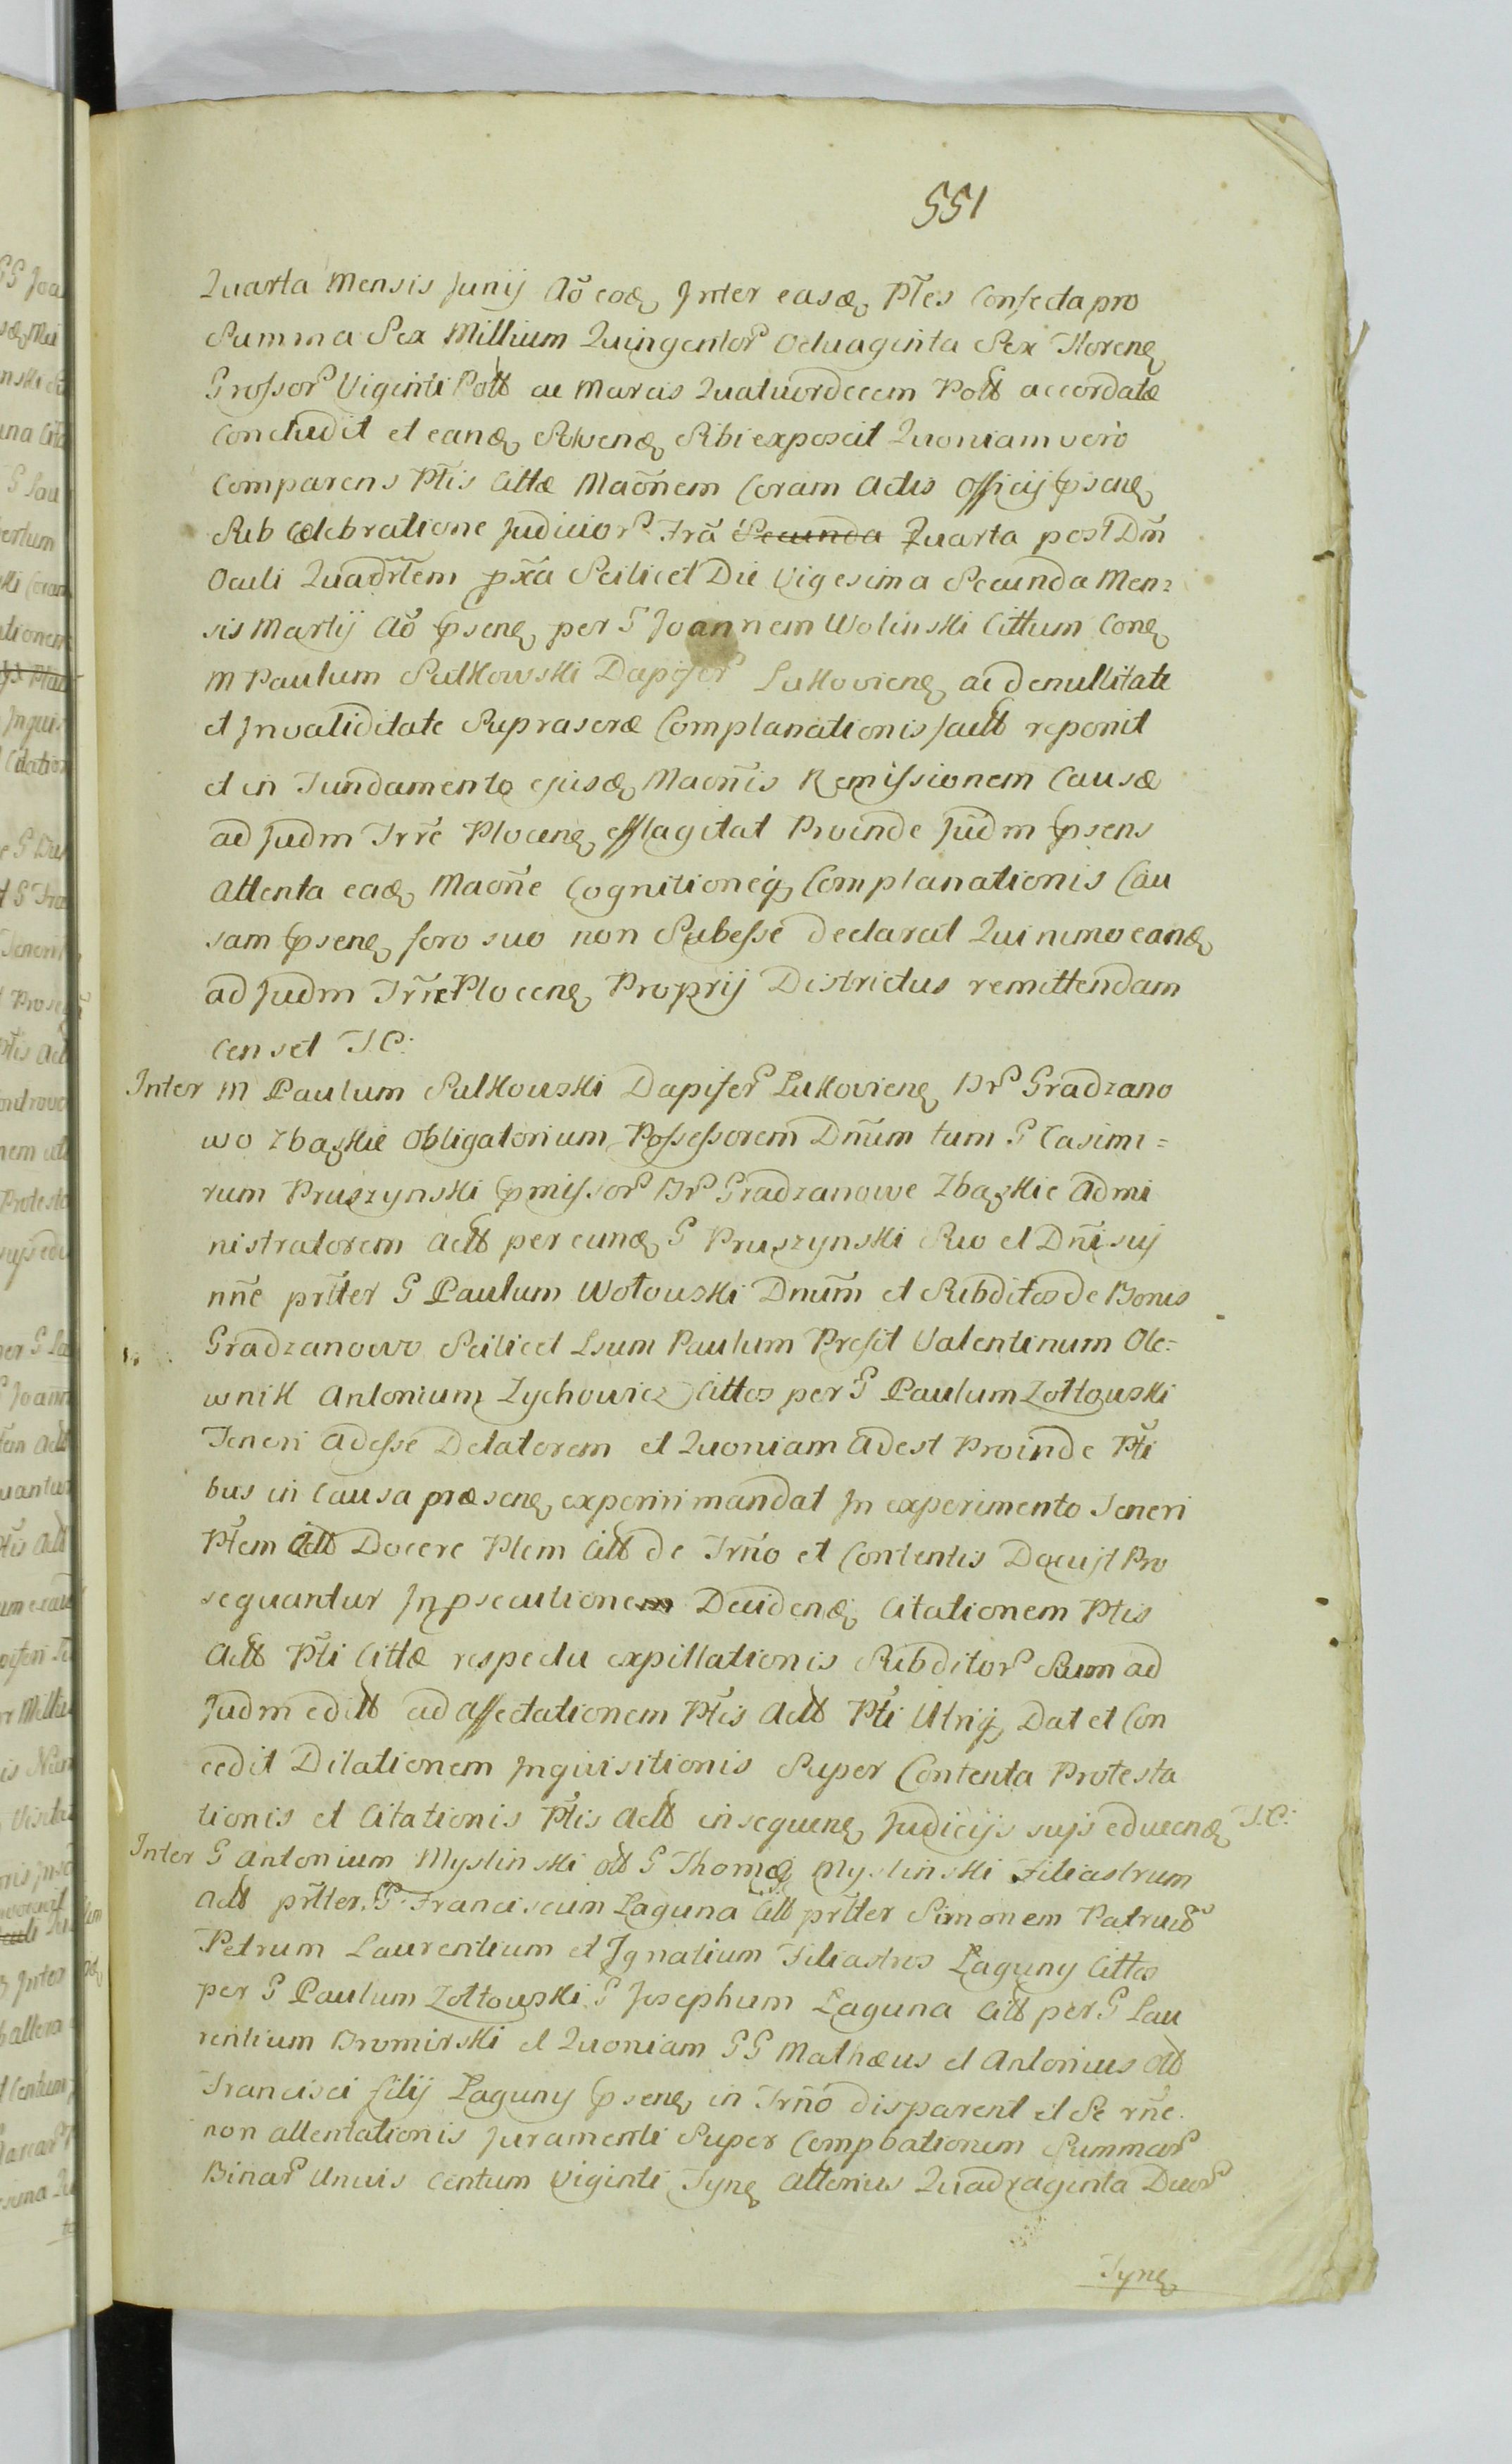 551
Quarta Mensis Junij Aõ eod, Inter easd, Ptes Confecta pro
Summa Sex Millium Quingentor Octuaginta Sex Floren,
Grossor Viginti Poll ac Marcis Quatuordecem Poll accordatæ
Concludit et eand, Solvend, Sibi exposcit Quoniam vero
Comparens Ptis Cittæ Maõnem Coram Actis Officij psen,
Sub Celebratione Judicior Frã Secunda Quarta post Dm
Oculi Quadrlem pxa Scilicet Die Vigesima Secunda Men=
sis Martij Aõ psen, per G Joannem Wolinski Cittum Con,
M Paulum Sulkowski Dapifer Lukovien, ac de nullitate
et Invaliditate Suprascræ Complanationis factt reponit
et in Fundamento ejusd, Maõnis Remissionem Causæ
ad Judm Trre Plocen, efflagitat Proinde Judm psens
attenta ead, Maõne Cognitioneq, Complanationis Cau
sam psen, foro suo non Subesse declarat Quinimo eand,
ad Judm Trre Plocen, Proprij Districtus remittendam
Censet J.C:
Inter M Paulum Sulkowski Dapifer Lukovien, Br Gradzano
wo Zbąskie Obligatorium Possessorem Dnum tum G Casimi=
rum Pruszynski pmissor Br Gradzanowo Zbąskie Admi
nistratorem Actt per eund, G Pruszynski Suo et Dni sui
nne prlter G Paulum Wołowski Dnum et Subditos de Bonis
Gradzanowo Scilicet Lsum Paulum Presit Valentinum Ole=
wnik Antonium Zychowicz Cittos per G Paulum Zołtowski
Teneri Adesse Delatorem et Quoniam Adest Proinde Pti
bus in Causa præsen, experiri mandat In experimento Teneri
Ptem Actt Docere Ptem Citt de Trño et Contentis Docuit Pro
sequantur In psecutionem Deciden, Citationem Ptis
Actt Pti Cittæ respectu expillationis Subditor Suum ad
Judm editt ad affectationem Ptis Actt Pti Utriq, Dat et Con
cedit Dilationem Inquisitionis Super Contenta Protesta
tionis et Citationis Ptis Actt in sequen, Judicijs sujs educend, J.C:
Inter G Antonium Myslinski olt G Thomæ Myslinski Filiastrum
Actt prlter G Franciscum Laguna Citt prlter Simonem Patruū
Petrum Laurentium et Ignatium Filiastros Laguny Cittos
per G Paulum Zołtowski G Josephum Laguna Citt per G Lau
rentium Bromirski et Quoniam GG Mathæus et Antonius olt
Francisci filij Laguny psen, in Trño disparent et Se rne
non attentationis Juramenti Super Compbationem Summar
Binar Unius Centum Viginti Tyn, alterius Quadraginta Duor
Tyn,